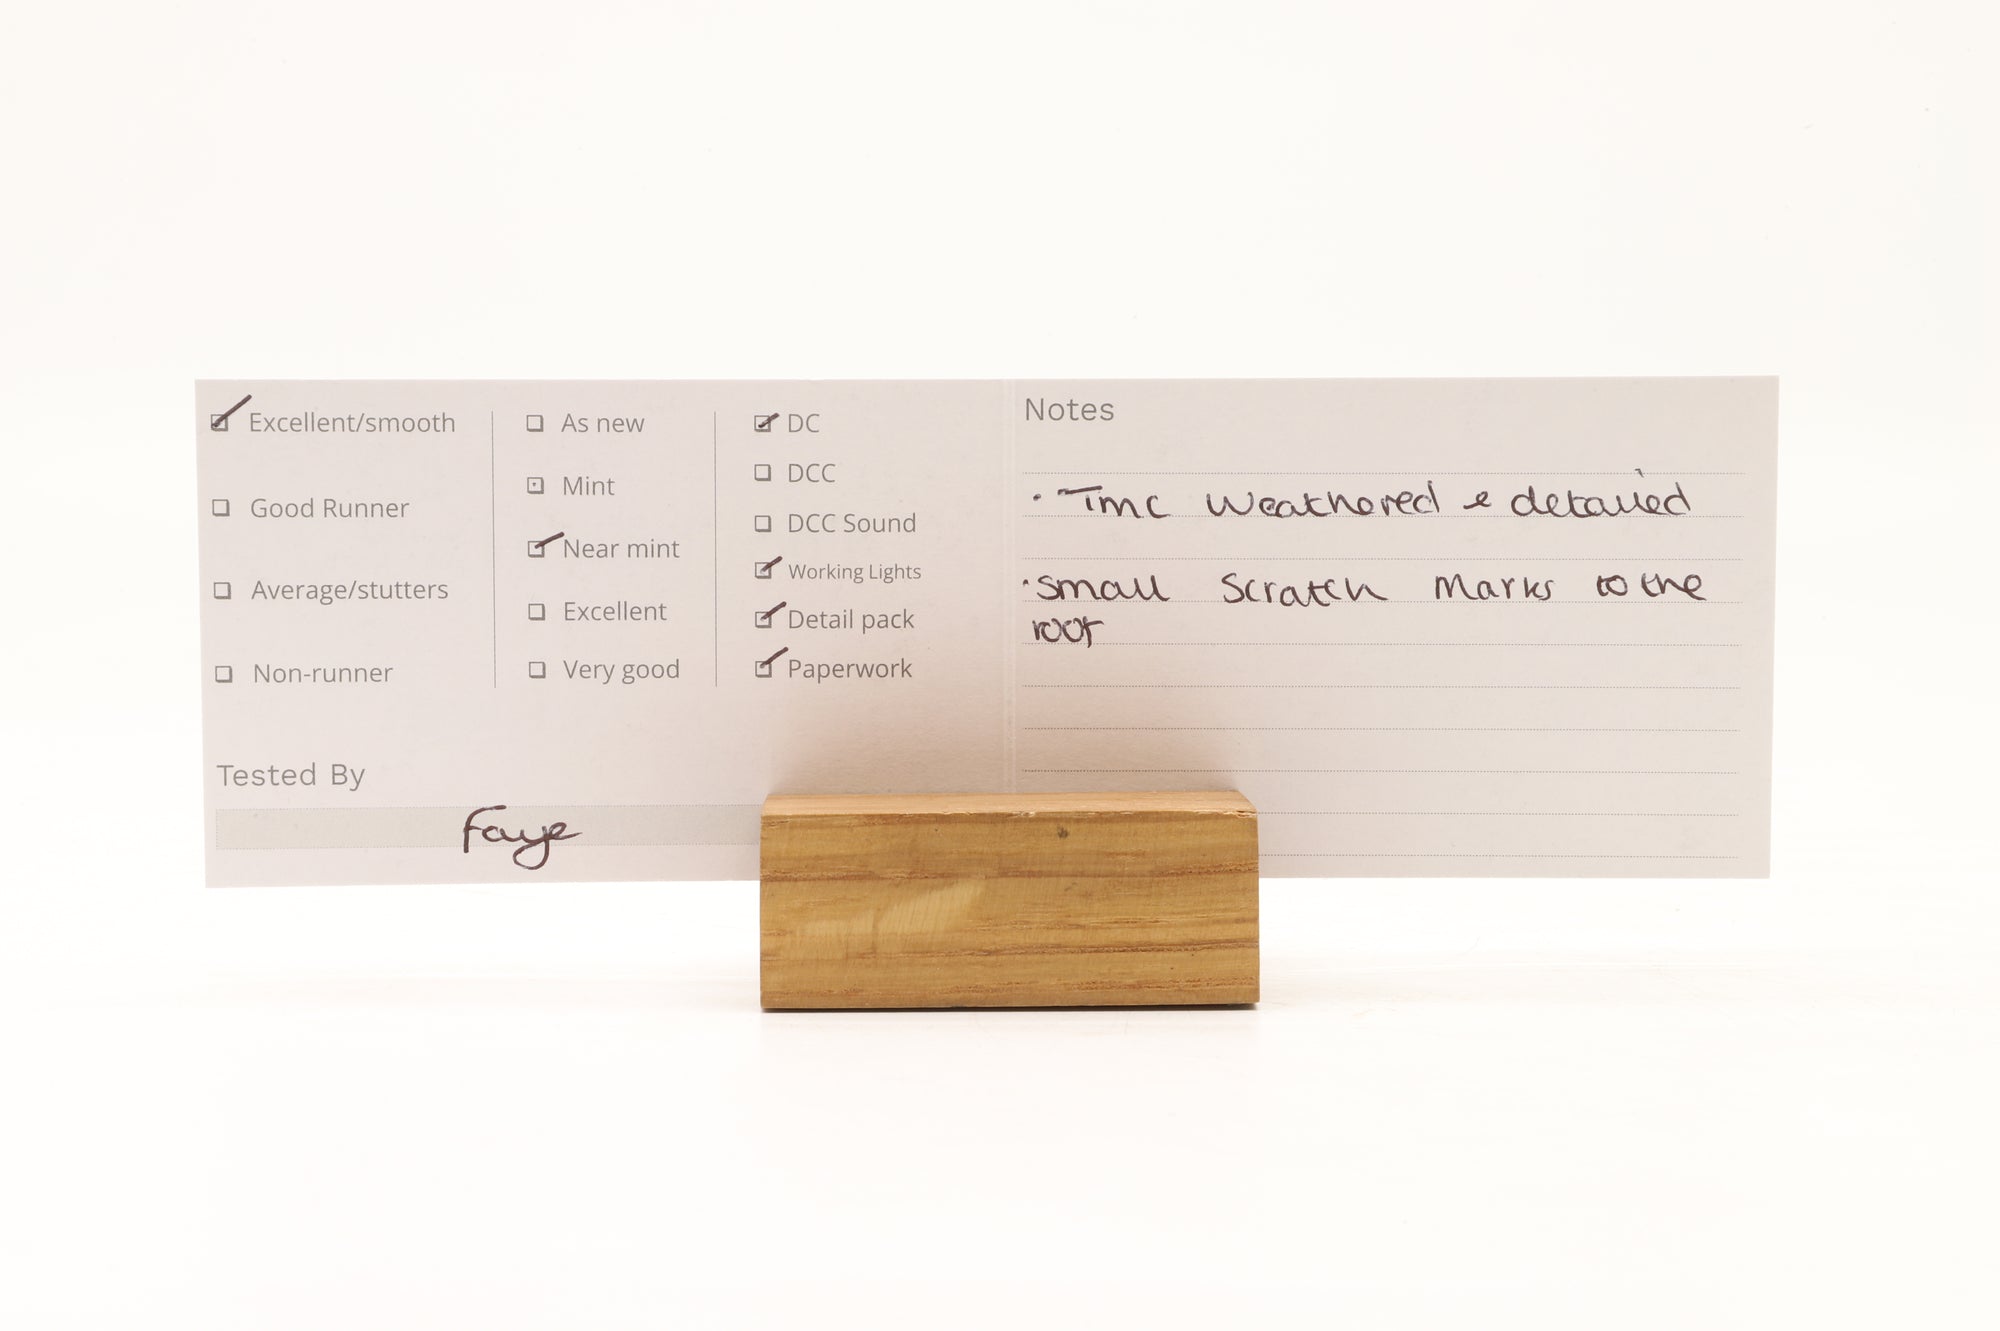 Excellent/smooth
Good Runner
Average/stutters
Non-runner
As new
Mint
Near mint
Excellent
Very good
DC
DCC
DCC Sound
Working Lights
Detail pack
Paperwork
Tested By
Faye
Notes
· Tmc Weathered & detailed
· Small Scratch Marks to the
roof